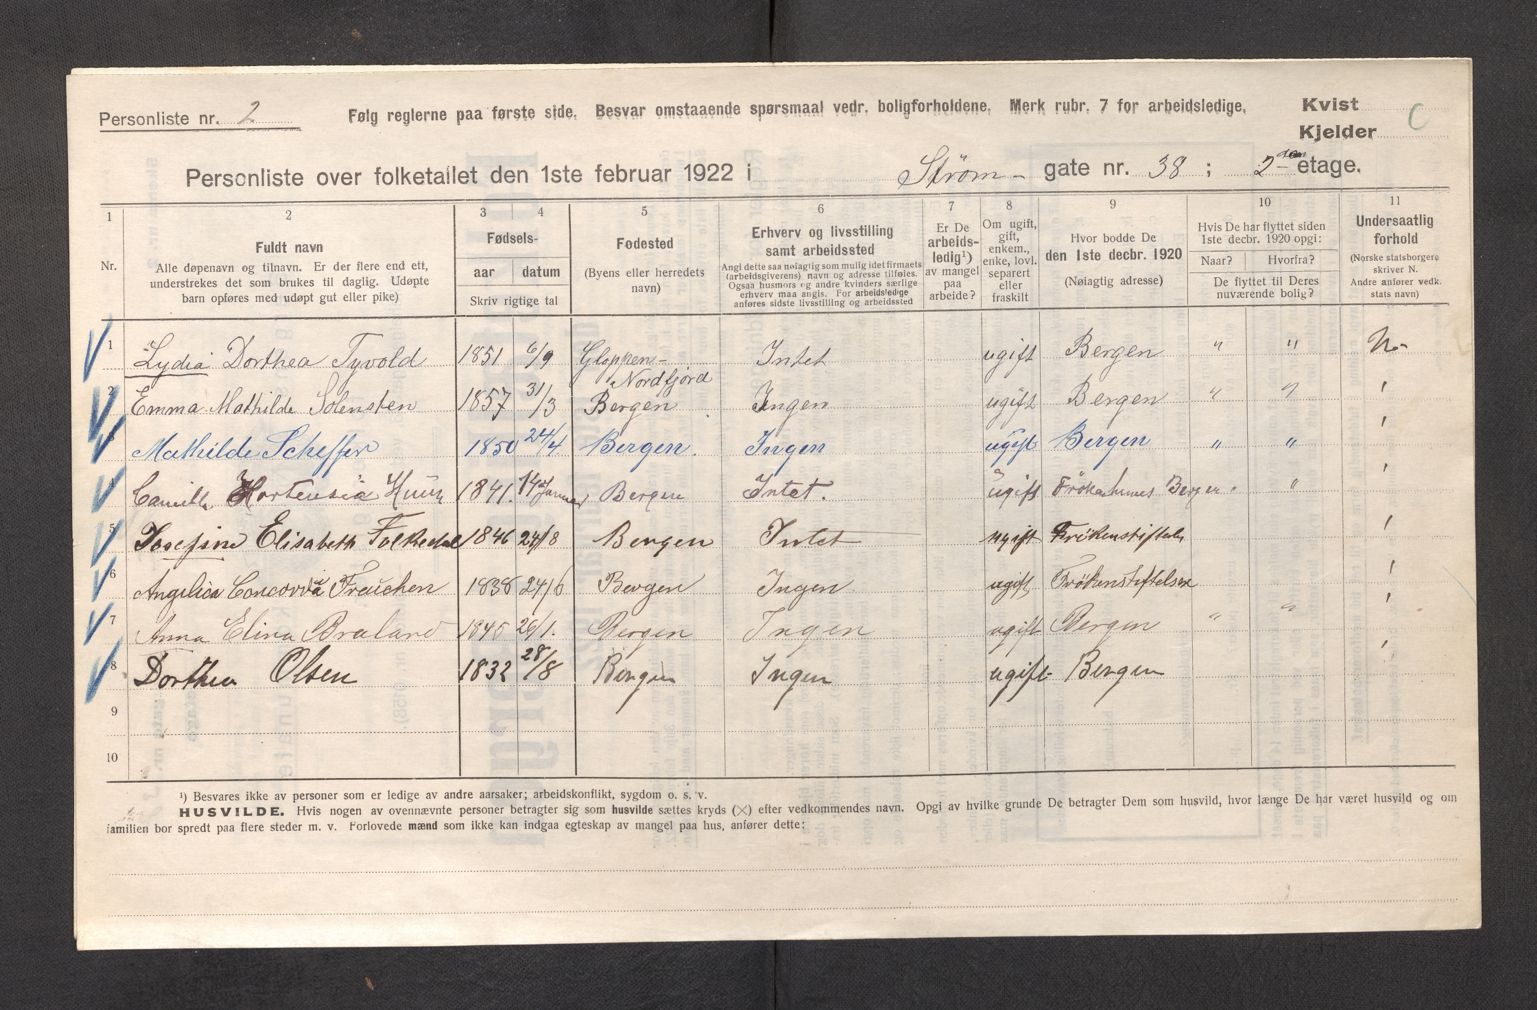 Personliste nr. 2
Følg reglerne paa første side. Besvar omstaaende spørsmaal vedr. boligforholdene. Merk rubr. 7 for arbeidsledige.
Kvist
Kjelder C
Personliste over folketallet den 1ste februar 1922 i Strøm- gate nr. 38 ; 2den etage.
1 2 3 4 5 6 7 8 9 10 11
Nr.
Fuldt navn
Alle døpenavn og tilnavn. Er der flere end ett,
understrekes det som brukes til daglig. Udøpte
barn opføres med udøpt gut eller pike)
Fødsels-
aar datum
Skriv rigtige tal
Fødested
(Byens eller herredets
navn)
Erhverv og livsstilling
samt arbeidssted
Angi dette saa nøiagtig som mulig idet firmaets
(arbeidsgiverens) navn og adresse tilføies.
Ogsaa husmors og andre kvinders særlige
erhverv maa angis. For arbeidsledige
anføres sidste livsstilling og arbeidssted
Er De
arbeids-
ledig¹)
av mangel
paa
arbeide?
Om ugift,
gift,
enkem.,
enke, lovl.
separert
eller
fraskilt
Hvor bodde De
den 1ste decbr. 1920
(Nøiagtig adresse)
Hvis De har flyttet siden
1ste decbr. 1920 opgi:
Naar? Hvorfra?
De flyttet til Deres
nuværende bolig?
Undersaatlig
forhold
(Norske statsborgere
skriver N.
Andre anfører vedk.
stats navn)
1 Lydia Dorthea Tyvold 1851 6/9 Gloppen- Nordfjord Intet ugift Bergen " " N-
2 Emma Mathilde Solensten 1857 31/3 Bergen Ingen ugift Bergen " " '
3 Mathilde Scheffer 1850 24/4 Bergen. Ingen ugift Bergen " " '
4 Camilla Hortensia 1841. 14 Januar Bergen Intet. ugift Bergen " '
5 Josefine Elisabeth Folkedal 1846 24/8 Bergen Intet ugift Frökenstiftels '
6 Angelica 1838 24/6 Bergen Ingen ugift Frökenstiftelsen '
7 Anna Elina Braland 26/1. Bergen Ingen ugift Bergen " " '
8 Dorthea Olsen 1832 28/8 Bergen Ingen ugift- Bergen '
9
10
¹) Besvares ikke av personer som er ledige av andre aarsaker; arbeidskonflikt, sygdom o. s. v.
HUSVILDE. Hvis nogen av ovennævnte personer betragter sig som husvilde sættes kryds (×) efter vedkommendes navn. Opgi av hvilke grunde De betragter Dem som husvild, hvor længe De har været husvild og om
familien bor spredt paa flere steder m. v. Forlovede mænd som ikke kan indgaa egteskap av mangel paa hus, anfører dette: